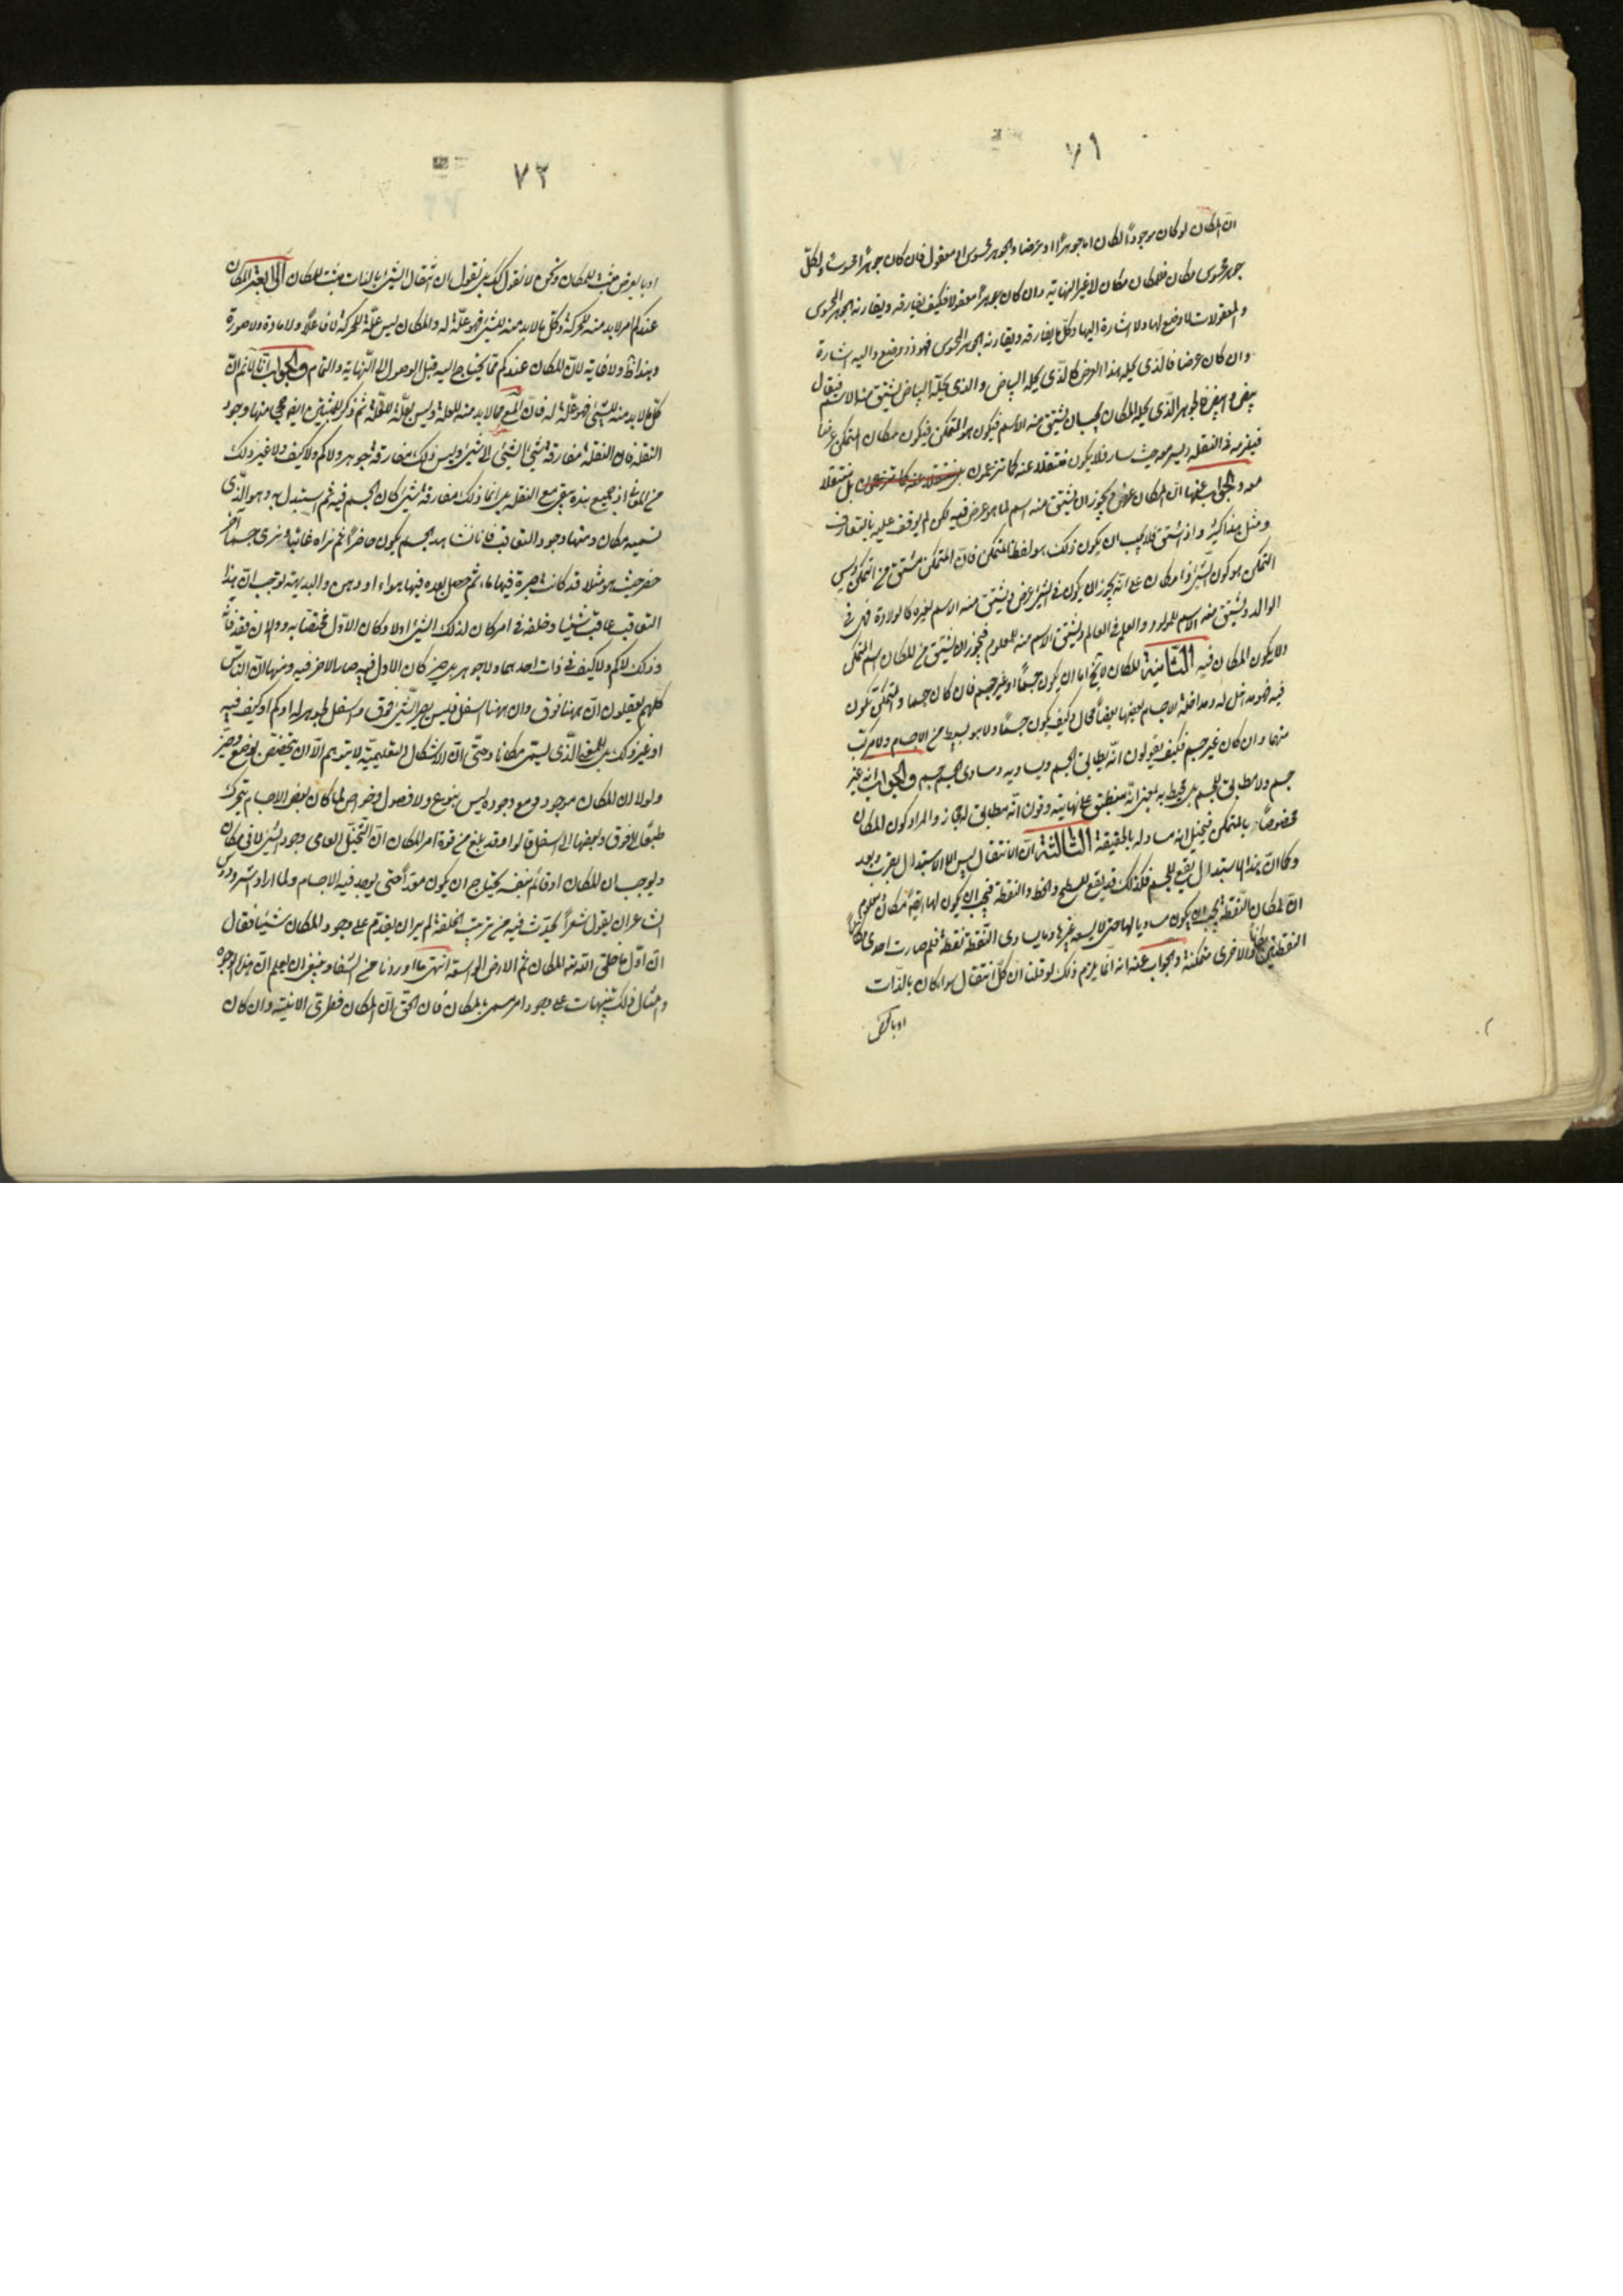 ٧١
ان المكان لو كان موجودا لكان اما جوهرا او عرضا والجوهر محسوس او معقول فان كان جوهرا محسوسا ولكل
جوهر محسوس مكان فللمكان مكان لا غير النهاية وان كان جوهرا معقولا فكيف يفارقه ويقارنه الجوهر المحسوس
والمعقولات لا وضع لها ولا اشارة اليها وكل ما يفارقه ويقارنه الجوهر المحسوس فهو ذو وضع واليه اشارة
وان كان عرضا فالذي يحله هذا العرض كالذي يحله البياض والذي يحله البياض يشتق منه الاسم فيقال
مبيض وابيض فالجوهر الذي يحله المكان يجب ان يشتق منه الاسم فيكون هو المتمكن فيكون مكان المتمكن عرضا
فيه فيلزمه في النقلة ويسير معه حيث سار فلا يكون منتقلا عنه كما تزعمون بل منتقلا
معه والجواب عنها ان المكان عرض يجوز ان يشتق منه اسم لما هو عرض فيه لكن لم يوقف عليه بالتعارف
ومثل هذا كثير واذا اشتق فلا يجب ان يكون ذلك هو لفظ المتمكن فان المتمكن مشتق من التمكن وليس
التمكن هو كون الشئ ذا مكان على انه يجوز ان يكون في الشئ عرض ويشتق منه الاسم لغيره كالولادة فهى في
الوالد ويشتق منه الاسم للمولود والعلم في العالم ويشتق الاسم منه للمعلوم فيجوز ان يشتق من المكان اسم المتمكن
ولا يكون المكان فيه الثانية المكان لا يخ اما ان يكون جسما او غير جسم فان كان جسما والمتمكن يكون
فيه فهو مداخل له ومداخلة الاجسام بعضها بعضا محال وكيف يكون جسما ولا هو بسيط من الاجسام ولا مركب
منها وان كان غير جسم فكيف يقولون انه يطابق الجسم ويساويه ومساوى الجسم جسم والجواب انه غير
جسم ولا مطابق للجسم بل محيط به بمعنى انه منطبق على نهايته وقولنا انه مطابق بالمجاز والمراد كون المكان
مخصوصا بالمتمكن فيتخيل انه مساو له بالحقيقة الثالثة ان الانتقال ليس الا الاستبدال لقرب وبعد
وكما ان هذا الاستبدال يقع للجسم فكذلك قد يقع للسطح والخط والنقطة فيجب ان يكون لها ايضا مكان ومعلوم
ان مكان النقطة يجب ان يكون مساويا لها حتى لا يسعه غيرها وما يساوى النقطة نقطة فلم صارت احدى
النقطتين مكانا والاخرى متمكنة والجواب عنه انه انما يلزم ذلك لو قلنا ان كل انتقال سواء كان بالذات
او بالعرض
٧٢
او بالعرض مثبت للمكان ونحن لا نقول كك بل نقول ان انتقال الشئ بالذات مثبت للمكان الرابعة المكان
عندكم امر لابد منه للحركة وكل ما لابد منه للشئ فهو علة له والمكان ليس علة للحركة لا فاعلا ولا مادة ولا صورة
وهذا ظ ولا غاية لان المكان عندكم مما يحتاج اليه قبل الوصول الى النهاية والتمام والجواب انا لا نم ان
كل ما لابد منه للشئ فهو علة له فان المع مما لابد منه للعلة وليس بعلة للعلة ثم ذكر للمثبتين ايضا حجج منها وجود
النقلة فان النقلة مفارقة شئ لشئ الى شئ وليس ذلك مفارقة جوهر ولا كم ولا كيف ولا غير ذلك
من المعاني اذ جميع هذه تبقى مع النقلة بل انما ذلك مفارقة شئ كان الجسم فيه ثم استبدل به وهو الذي
نسميه مكان ومنها وجود التعاقب فانا نشاهد الجسم يكون حاضرا ثم نراه غائبا ونرى جسما آخر
حضر حيث هو مثلا قد كانت جرة فيها ماء ثم حصل بعده فيها هواء او دهن والبديهة توجب ان هذا
التعاقب عاقب شيئا وخلفه في امر كان لذلك الشئ اولا وكان الاول مختصا به والان فقد فاته
وذلك لا كم ولا كيف في ذات احدهما ولا جوهر بل حيز كان الاول فيه صار الاخر فيه ومنها ان الناس
كلهم يعقلون ان ههنا فوق وان ههنا اسفل فليس يصير الشئ فوق واسفل لجوهر له او كم او كيف فيه
او غير ذلك بل للمعنى الذي يسمى مكانا وحتى ان الاشكال التعليمية لا يتوهم الا ان يتخصص بوضع وحيز
ولولا ان المكان موجود ومع وجوده ليس بنوع ولا فصول وخواص لما كان بعض الاجسام يتحرك
طبعا الى فوق وبعضها الى اسفل قالوا وقد بلغ من قوة امر المكان ان التخيل العامى وجود الشئ لا في مكان
ويوجب ان المكان او قائم بنفسه يحتاج ان يكون معدا حتى يوجد فيه الاجسام ولما اراد اسرودوس
الشاعر ان يقول شعرا يحدث فيه من ترتيب الخلقة لم ير ان يقدم على وجود المكان شيئا فقال
ان اول ما خلق الله تع المكان ثم الارض الواسعة انتهى ما اوردنا من الشفاء وينبغى ان يعلم ان هذه الوجوه
وامثال ذلك تنبيهات على وجود امر مسمى بالمكان فان الحق ان المكان فطرى الانية وان كان